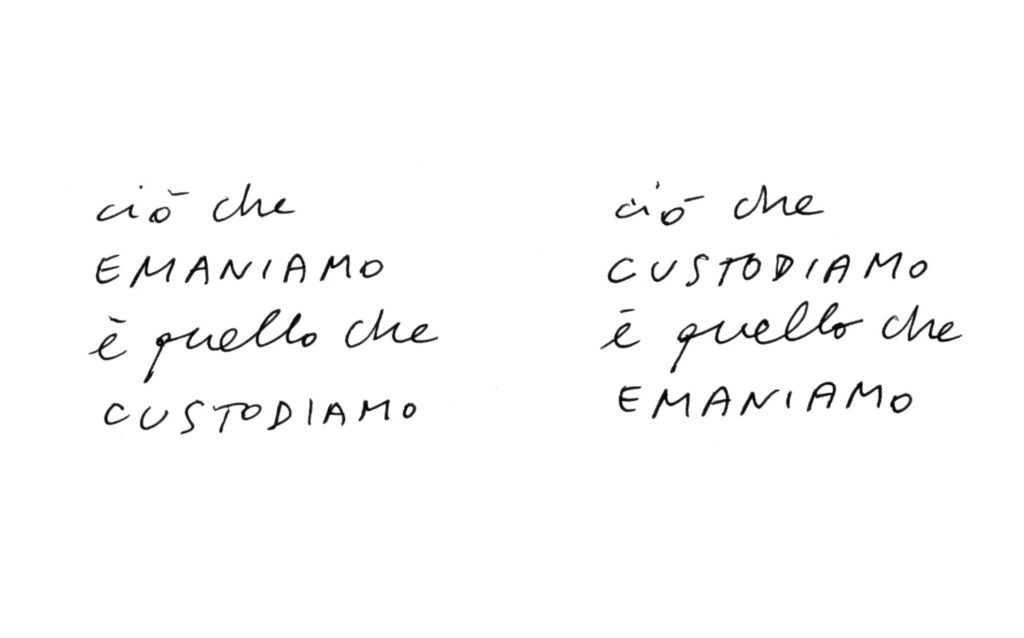 ciò che
EMANIAMO
è quello che
CUSTODIAMO
ciò che
CUSTODIAMO
è quello che
EMANIAMO